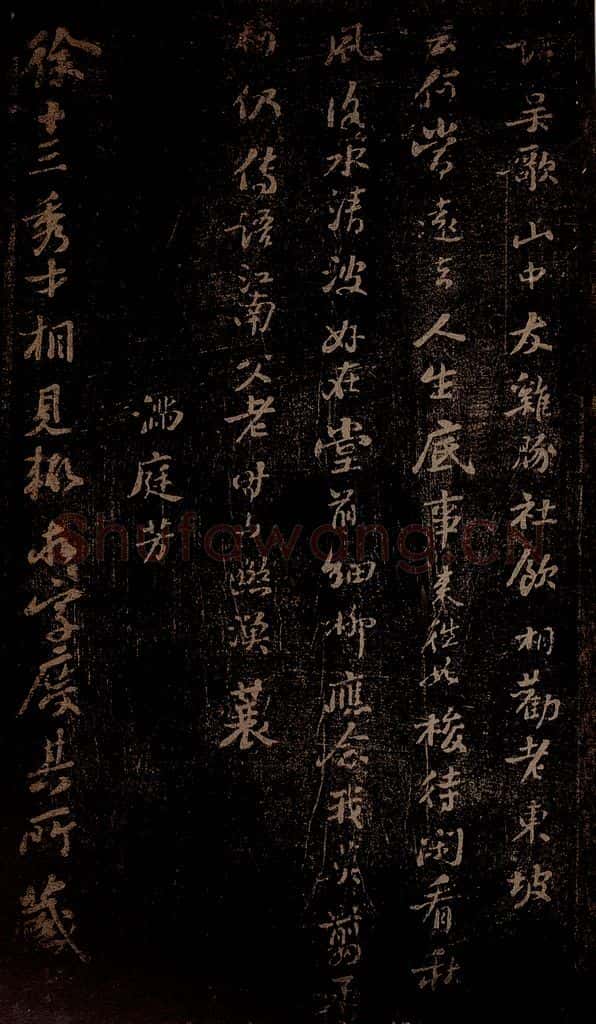 吳歌山中友雞豚社飲相勸老東坡
云何當遠去人生底事來往如梭待閑看秋
風洛水清波好在堂前細柳應念我莫翦柔
柯仍傳語江南父老時与曬漁蓑
滿庭芳
徐十三秀才相見輒求字度其所藏
Shufawang.CN